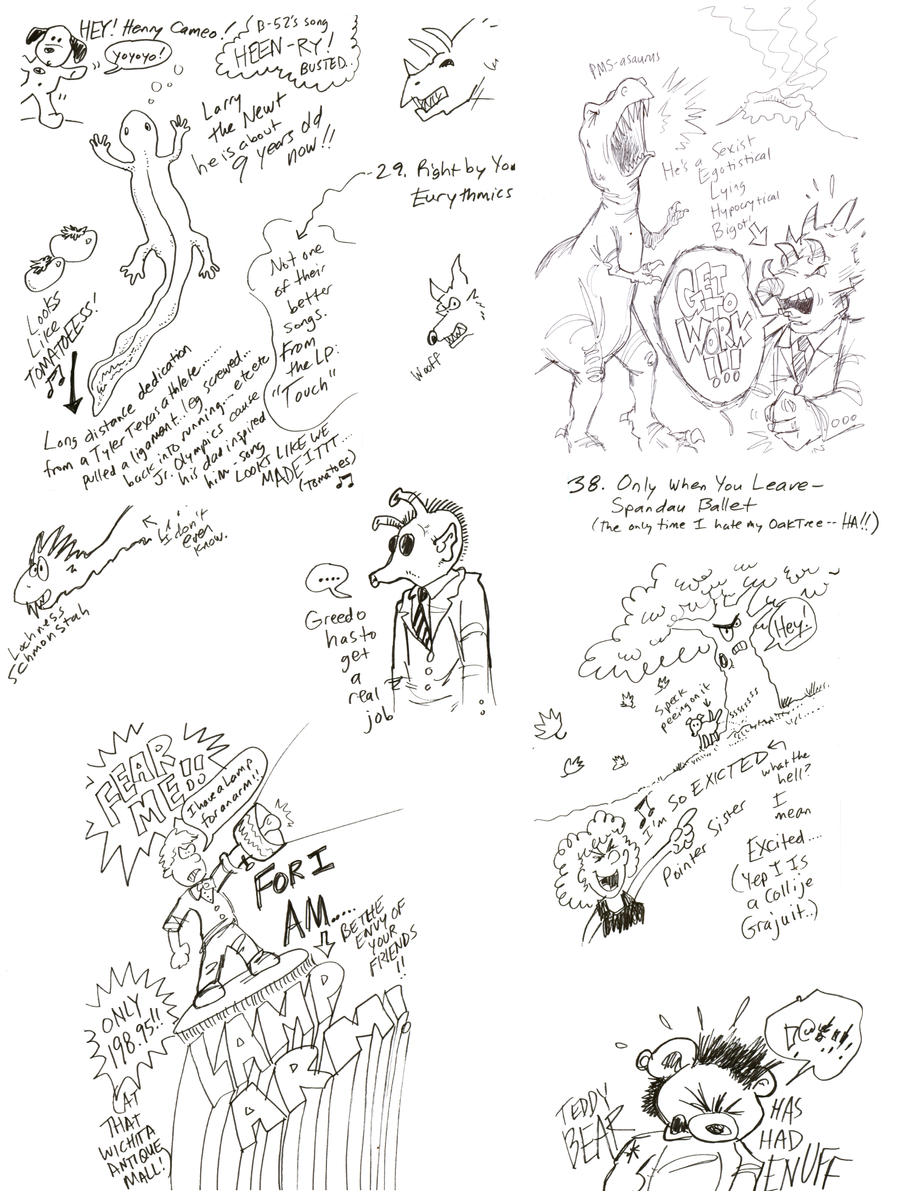 HEY! Henry Cameo!
yoyoyo!
B-52's song
HEEN-RY!
BUSTED..
Larry
the Newt
he is about
9 years old
now!!
29. Right by You
Eurythmics
Not one
of their
better
songs.
From
the LP:
"Touch"
Looks
Like
TOMATOEESS!
Wooff
Long distance dedication
from a Tyler Texas athlete......
pulled a ligament..leg screwed...
back into running.... etcetc
Jr. Olympics cause
his dad inspired
him - song
LOOKS LIKE WE
MADE ITTT....
(Tomatoes)
PMS-asaurus
He's a Sexist
Egotistical
Lying
Hypocrytical
Bigot!
GET
TO
WORK
!!!
38. Only When You Leave-
Spandau Ballet
(The only time I hate my OakTree-- HA!!)
I don't
even
know.
Lochness
Schmonstah
....
Greedo
has to
get
a
real
job
Hey!
Speck
peeing on it
ssssssss
I'm SO EXICTED
Pointer Sister
what the
hell?
I
mean
Excited....
(Yep I Is
a Collije
Grajuit..)
FEAR
ME!!
DO
I have a Lamp
for an arm!!
FOR I
AM.....
BE THE
ENVY OF
YOUR
FRIENDS
!!
LAMP
ARM!
ONLY
198.95!!
(AT
THAT
WICHITA
ANTIQUE
MALL!)
TEDDY
BEAR
HAS
HAD
ENUFF